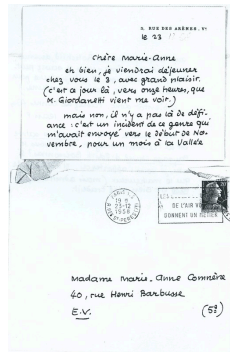 2, RUE DES ARÈNES, Ve
le 23
Chère Marie-Anne
eh bien, je viendrai déjeuner
chez vous le 3, avec grand plaisir.
(c'est ce jour là, vers onze heures, que
M. Giordanetti vient me voir.)
mais non, il n'y a pas là de défi-
ance : c'est un incident de ce genre qui
m'avait envoyé vers le début de No-
vembre, pour un mois à la Vallée
19 H
23-12
1958
DE L'AIR VOUS
DONNENT UN MÉTIER
Madame Marie-Anne Comnène
40, rue Henri Barbusse
E.V. (5e)